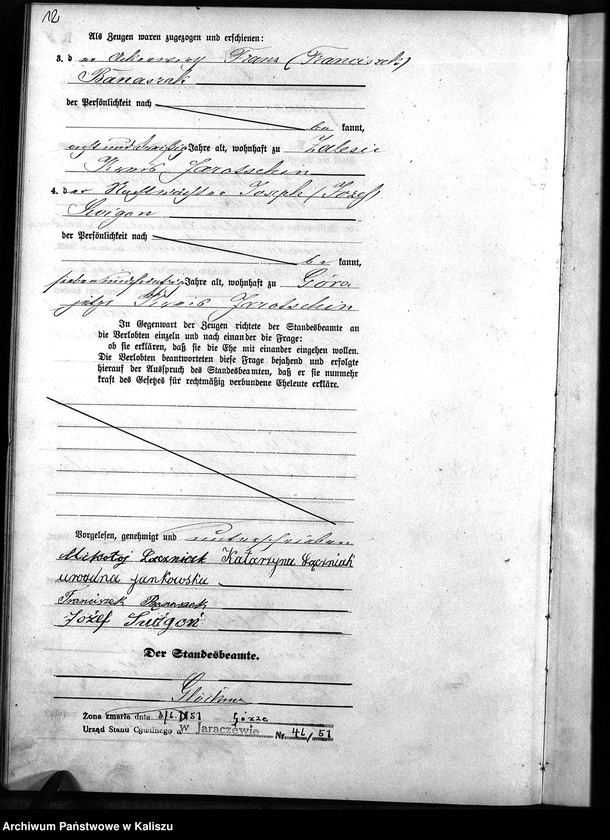 12
Als Zeugen waren zugezogen und erschienen:
3. der Ackerwirth Franz (Franciszek)
Banaszak
der Persönlichkeit nach
be kannt,
acht und dreißig Jahre alt, wohnhaft zu Zalesie
Kreis Jarotschin
4. der Nachtwächter Joseph (Józef)
der Persönlichkeit nach
be kannt,
sieben und Jahre alt, wohnhaft zu Góra
Kreis Jarotschin
In Gegenwart der Zeugen richtete der Standesbeamte an
die Verlobten einzeln und nach einander die Frage:
ob sie erklären, daß sie die Ehe mit einander eingehen wollen.
Die Verlobten beantworteten diese Frage bejahend und erfolgte
hierauf der Ausspruch des Standesbeamten, daß er sie nunmehr
kraft des Gesetzes für rechtmäßig verbundene Eheleute erkläre.
Vorgelesen, genehmigt und unterschrieben
Mikołaj Katarzyna
urodzna Jankowska
Franciszek Banaszak
Józef
Der Standesbeamte.
Żona zmarła dnia 51 Górze
Urząd Stanu Cywilnego w Jaraczewie Nr. 46/51
Archiwum Państwowe w Kaliszu